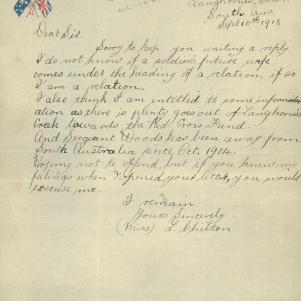 Langhornes Creek
South Aus.
Sept 10th 1918
Dear Sir.
Sorry to keep you waiting a reply
I do not know if a soldiers future wife
comes under the heading of a relation, if so
I am a relation.
I also think I am entitled to some information
ation as there is plenty goes out of Langhornes
Creek towards the Red Cross Fund.
And Sergeant Woods has been away from
South Australia since Oct. 1914.
Hoping not to offend, but if you knew my
feelings when I opened your letter, you would
excuse me.
I remain
Yours Sincerely
(Miss) L. Chilton